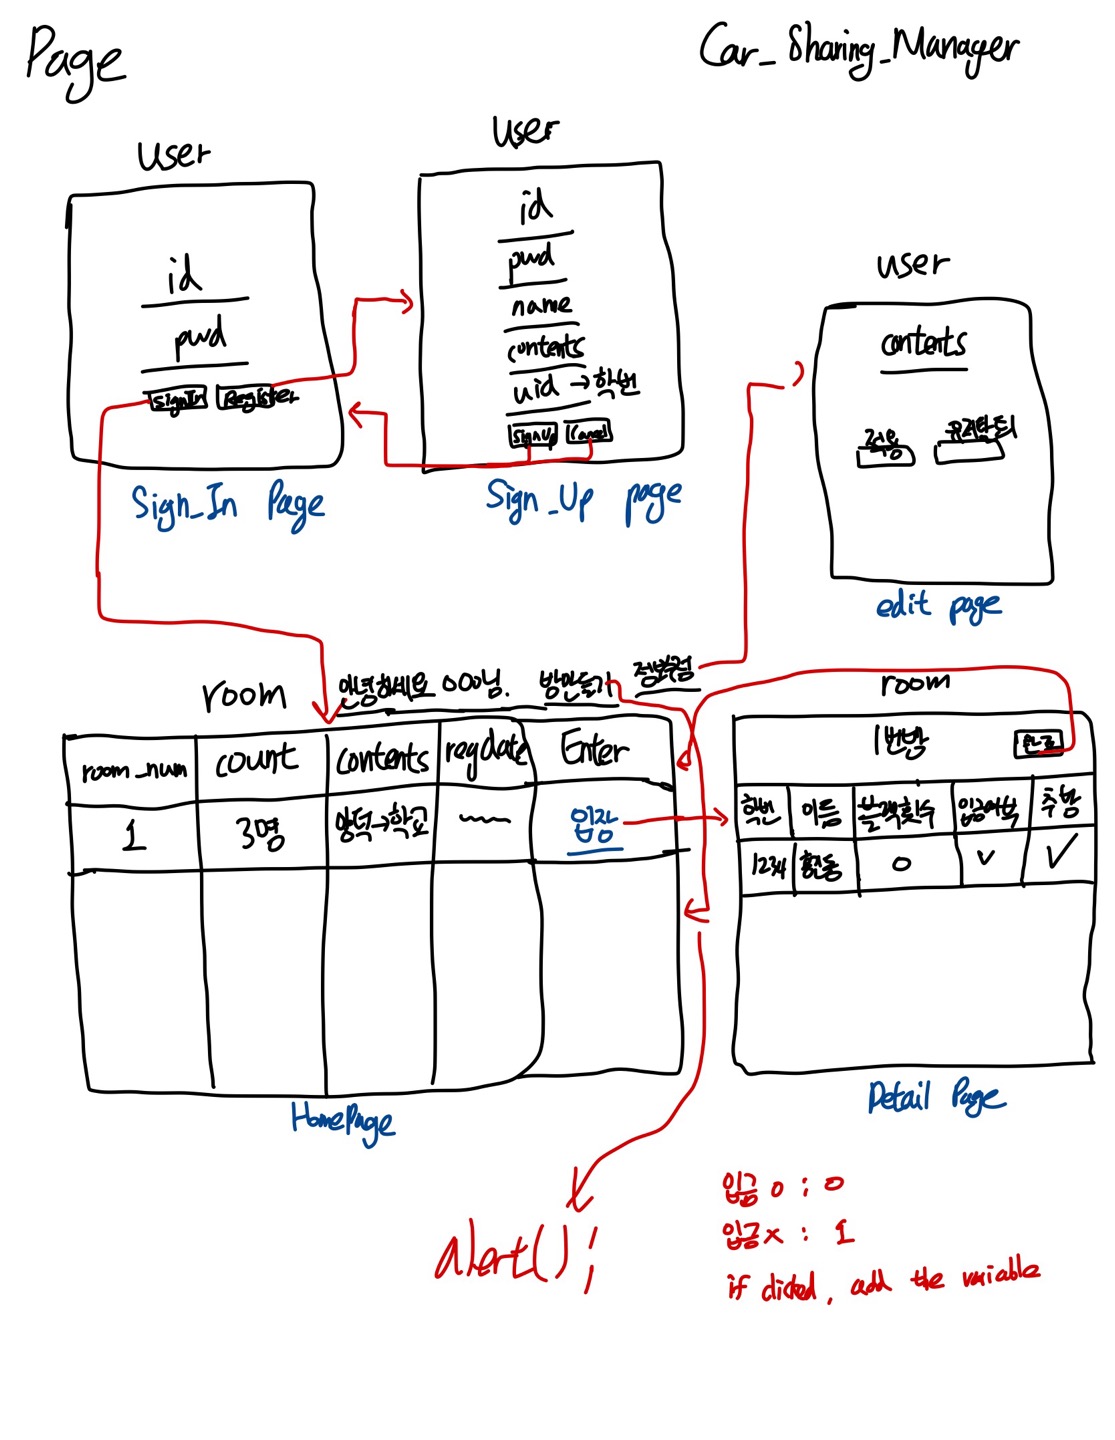 Page
Car_Sharing_Manager
user
id
pwd
SignIn Register
Sign_In Page
user
id
pwd
name
contents
uid → 학번
SignUp Cancel
Sign_Up page
user
contents
적용 유저탈퇴
edit page
room 안녕하세요 OOO님. 방만들기 정보수정
room_num count contents regdate Enter
1 3명 양덕→학교 입장
HomePage
room
1번방 완료
학번 이름 블랙횟수 입금여부 추방
1234 홍진동 0 v ✓
Detail Page
alert();
입금o : 0
입금x : 1
if clicked, add the variable